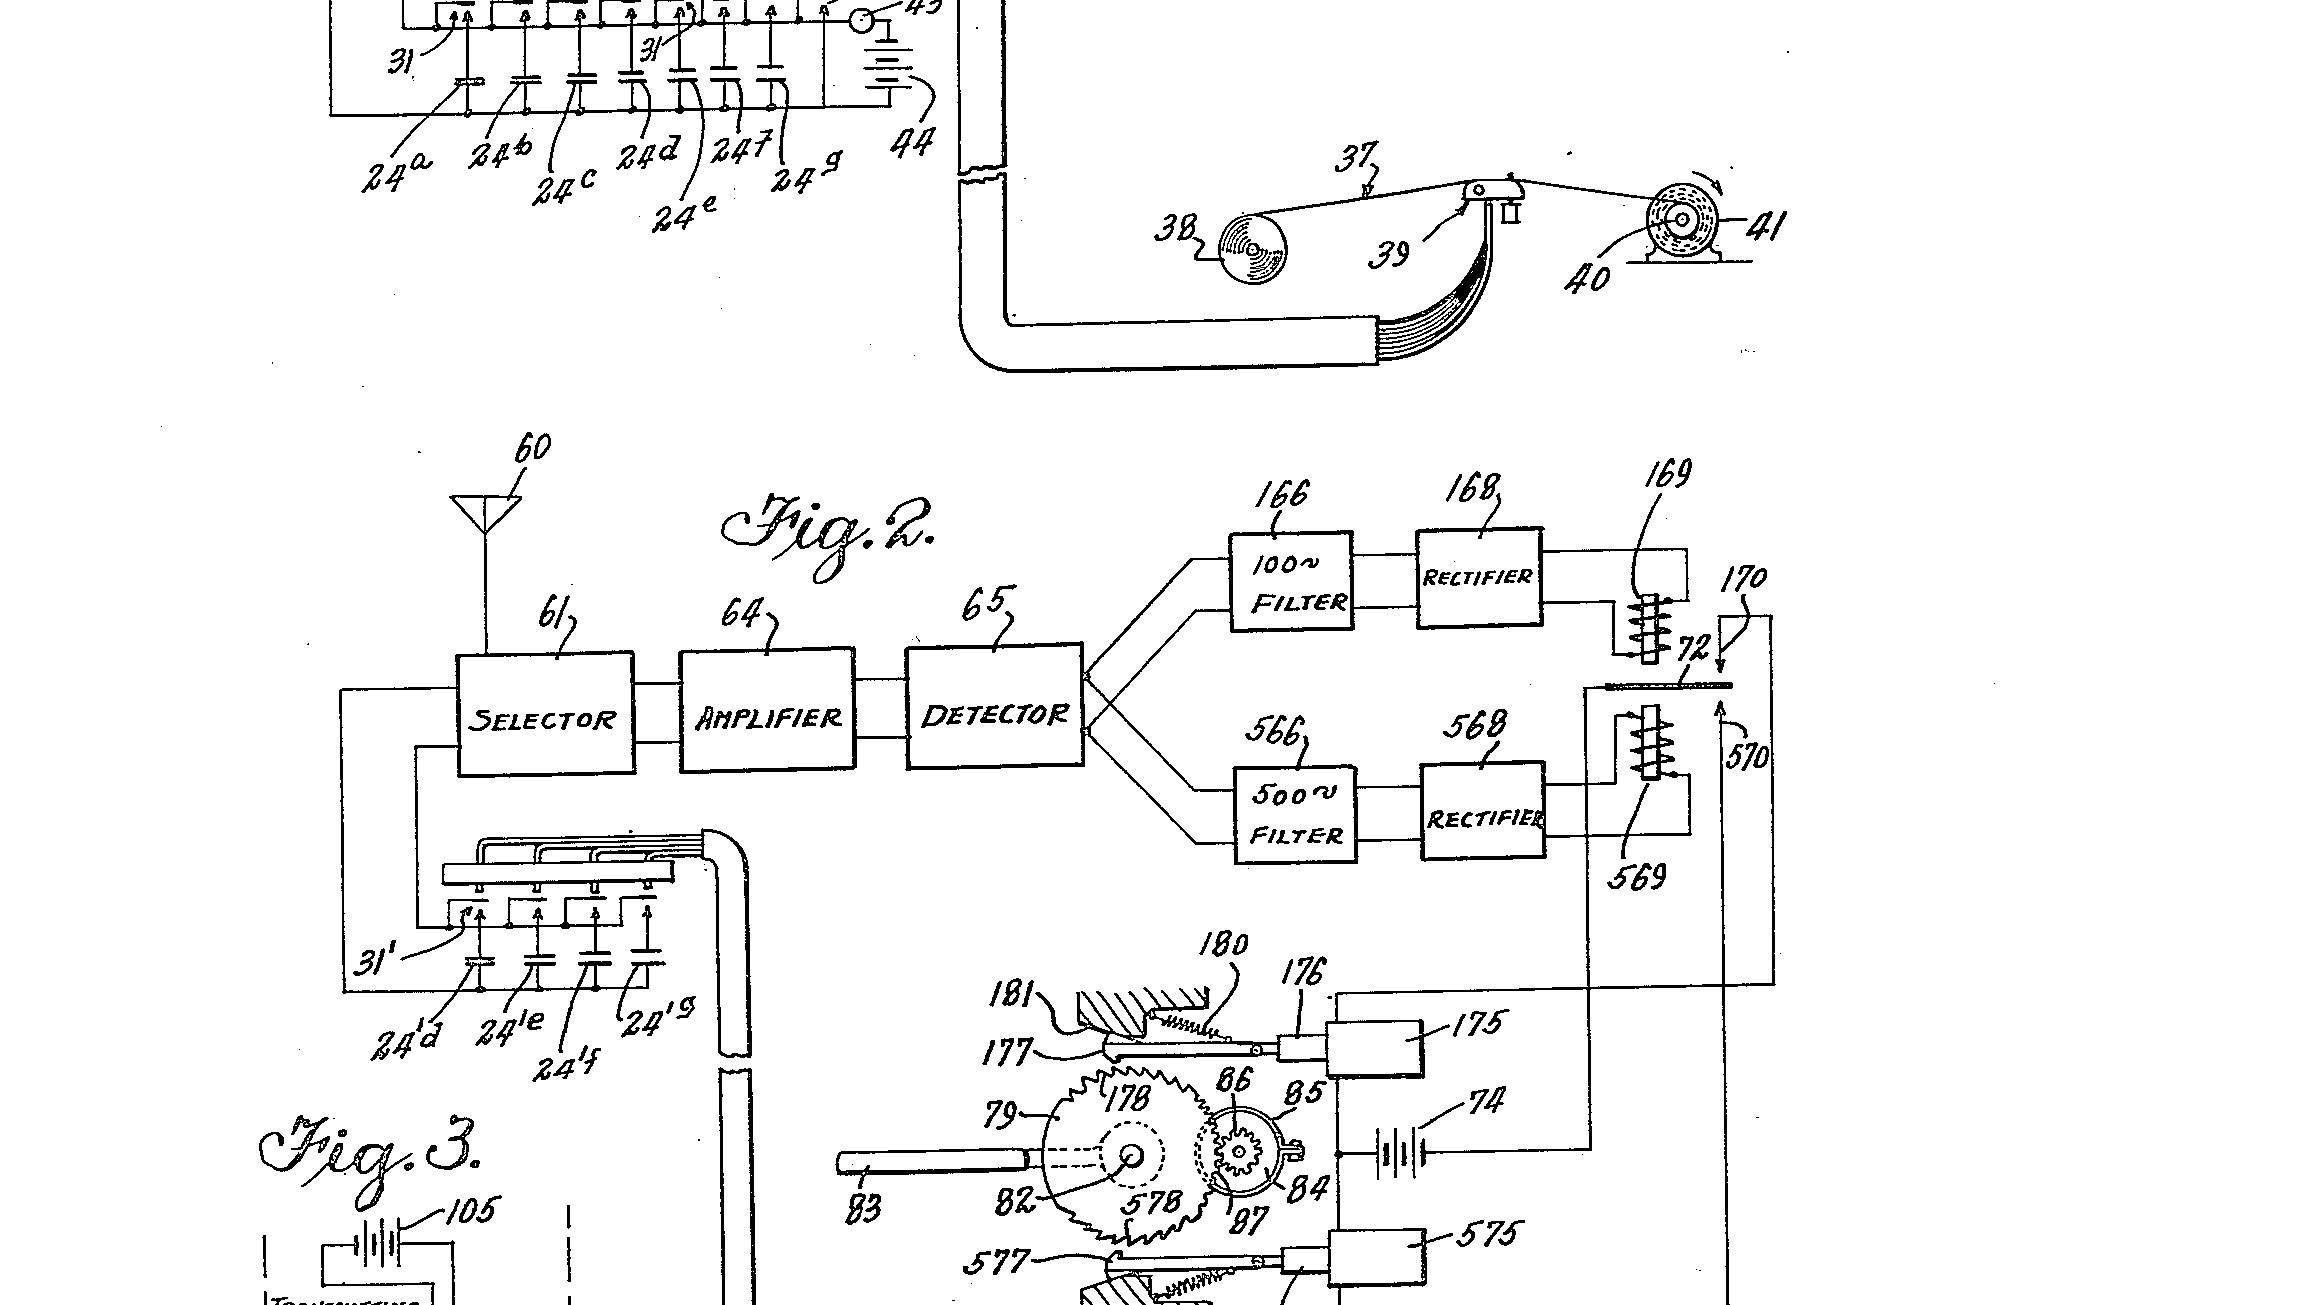 31
31
43
44
24a
24b
24c
24d
24e
24f
24g
37
38
39
40
41
60
Fig. 2.
61
SELECTOR
64
AMPLIFIER
65
DETECTOR
166
100~
FILTER
168
RECTIFIER
169
170
72
566
500~
FILTER
568
RECTIFIER
569
570
31'
24'd
24'e
24'f
24'g
180
181
176
175
177
178
79
86
85
74
83
82
578
87
84
577
575
Fig. 3.
105